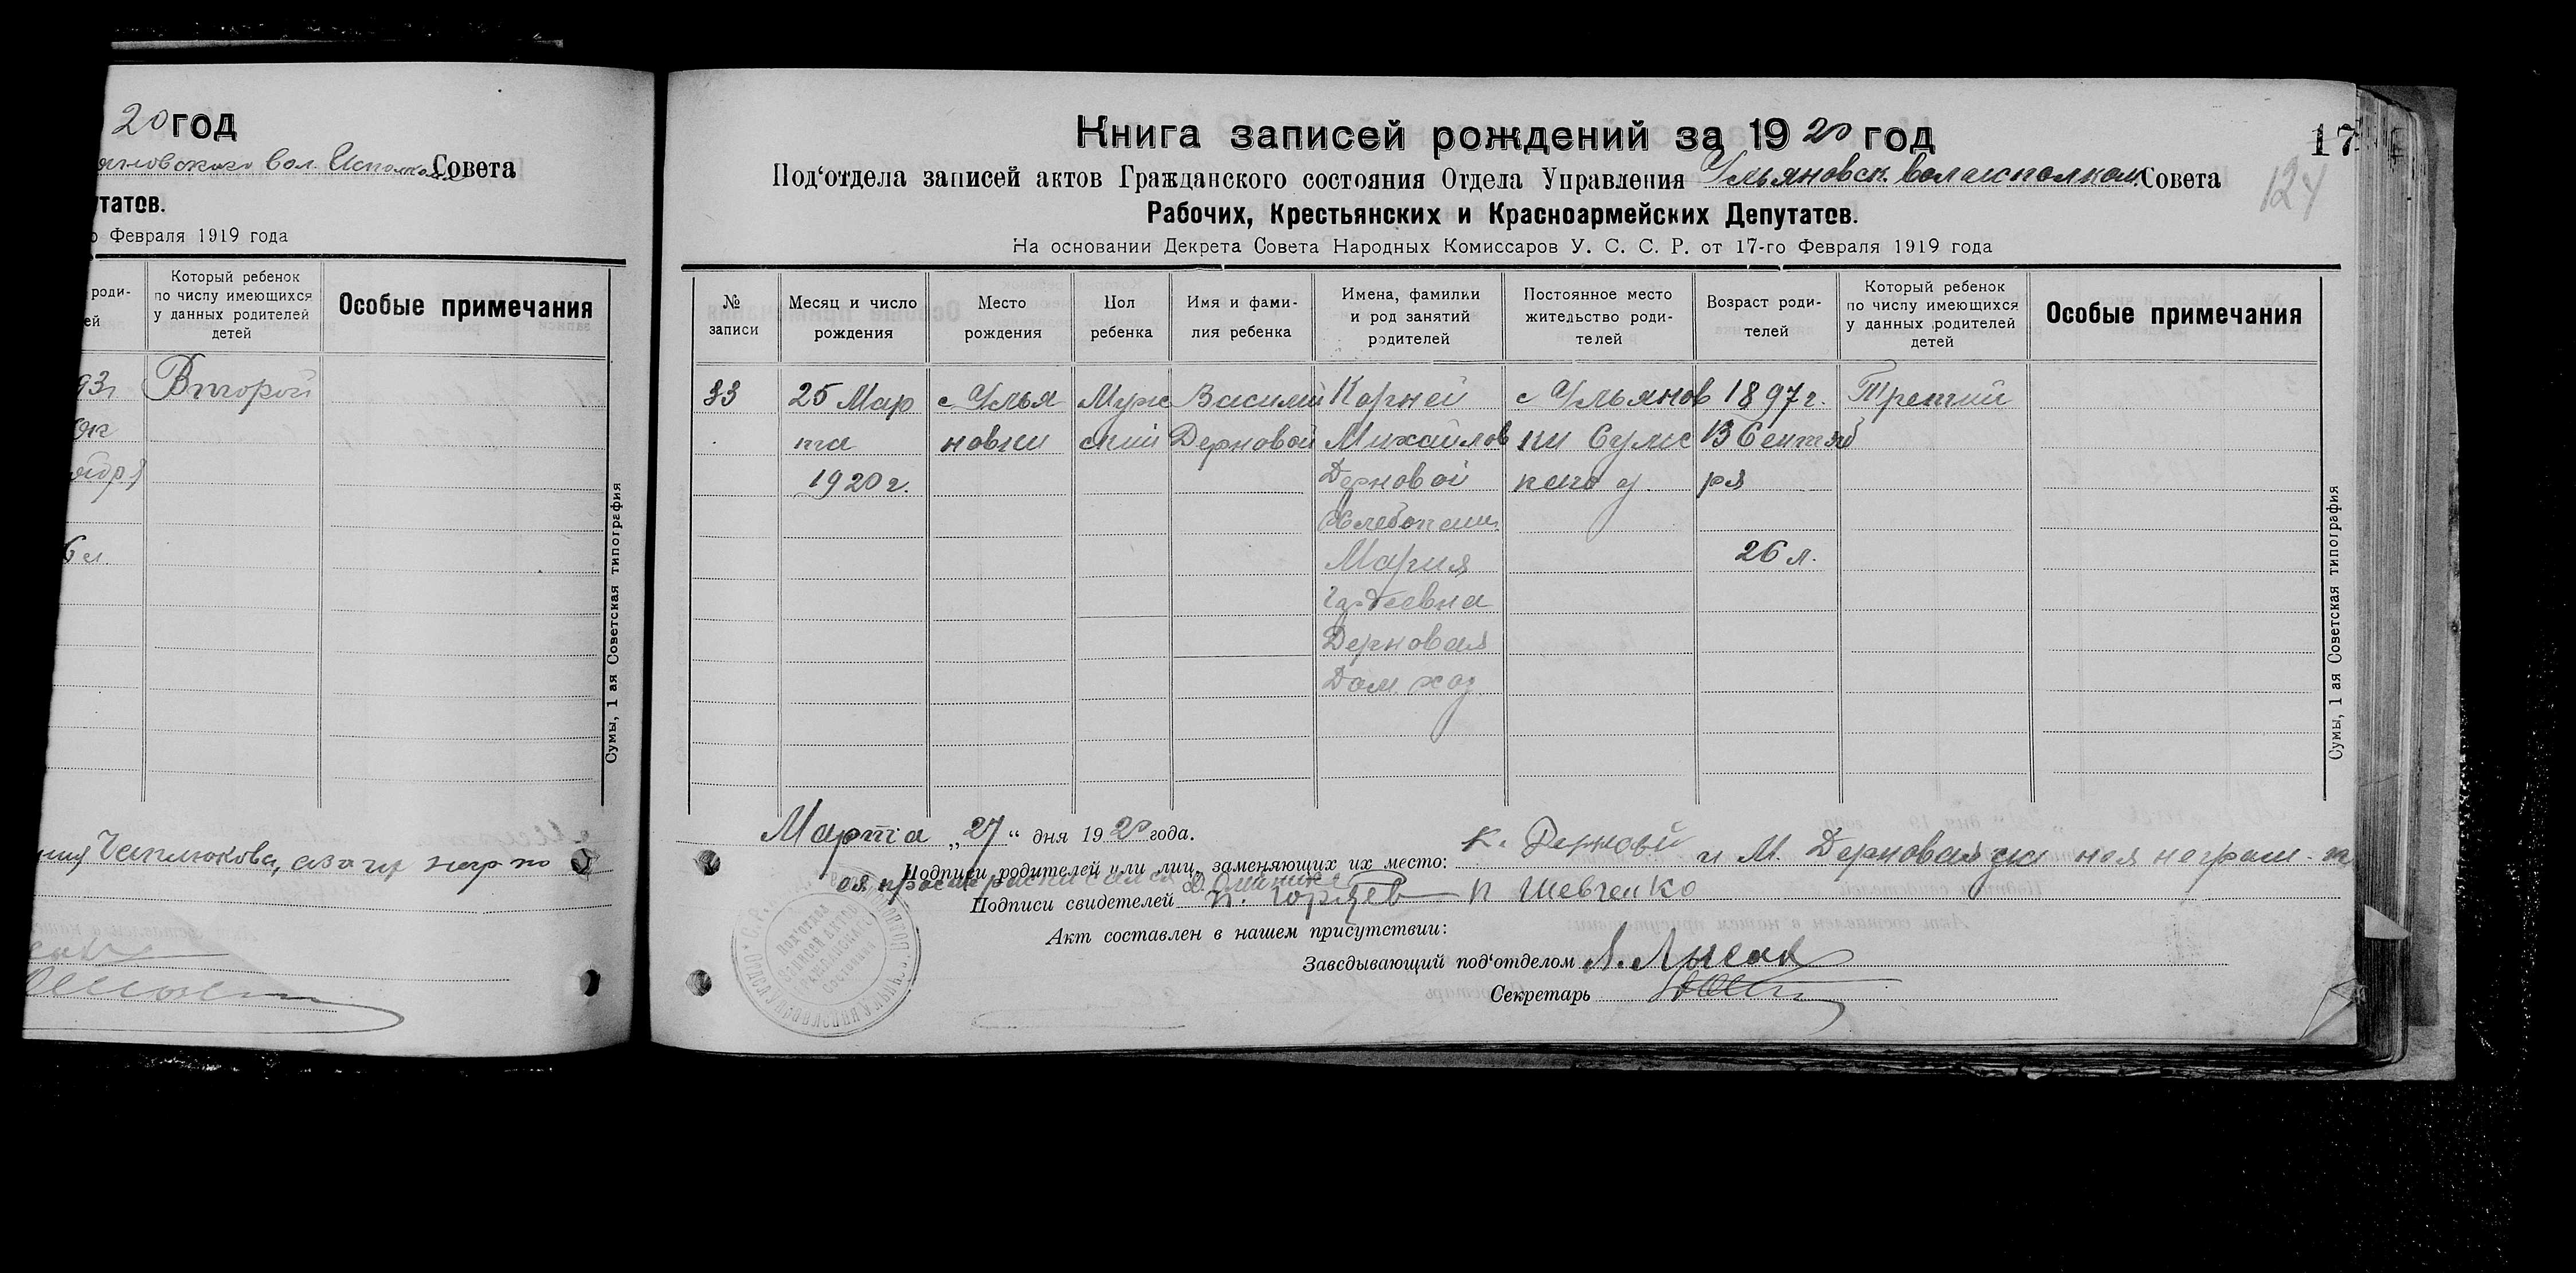 20 год
яновского вол. Исполком Совета
утатов.
о Февраля 1919 года
роди-
ей
Который ребенок
по числу имеющихся
у данных родителей
детей
Особые примечания
93г
Второй
Ок
ября
6 л.
Сумы, 1 ая Советская типография
Книга записей рождений за 1920 год
17
Под‘отдела записей актов Гражданского состояния Отдела Управления Ульяновск. волисполком. Совета
124
Рабочих, Крестьянских и Красноармейских Депутатов.
На основании Декрета Совета Народных Комиссаров У. С. С. Р. от 17-го Февраля 1919 года
№
записи
Месяц и число
рождения
Место
рождения
Пол
ребенка
Имя и фами-
лия ребенка
Имена, фамилии
и род занятий
родителей
Постоянное место
жительство роди-
телей
Возраст роди-
телей
Который ребенок
по числу имеющихся
у данных родителей
детей
Особые примечания
33
25 Мар
та
1920 г.
с Улья
новки
Муж
ский
Василий
Дерновой
Корней
Михайлов
Дерновой
Хлебопаш.
Мария
Дерновая
Дом. хоз.
с Ульянов
ки Сумс
кого у.
1897 г.
13 Сентяб
ря
26 л.
Третий
Сумы, 1 ая Советская типография
Марта „27“ дня 1920 года.
Подписи родителей или лиц, заменяющих их место: К. Дерновой и М. Дерновая
Подписи свидетелей П. Шевченко
Акт составлен в нашем присутствии:
Заведывающий под‘отделом
Секретарь